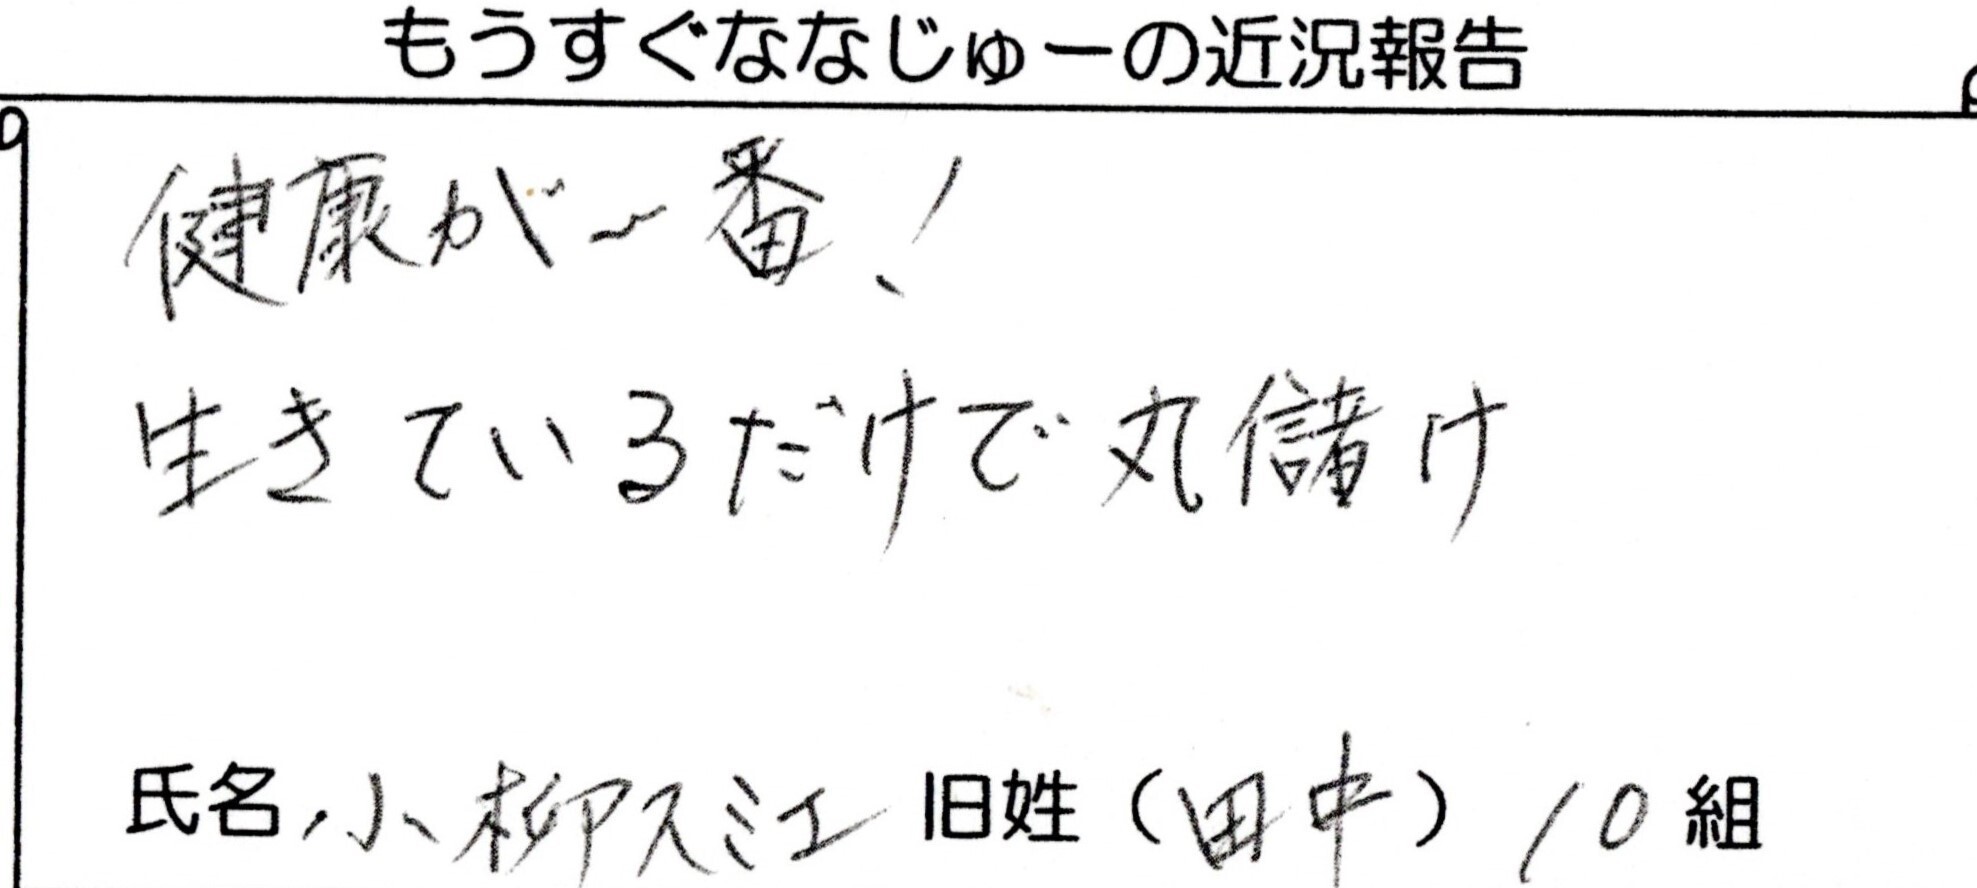 もうすぐななじゅーの近況報告
健康が一番!
生きているだけで丸儲け
氏名 小柳スミ江 旧姓(田中) 10組